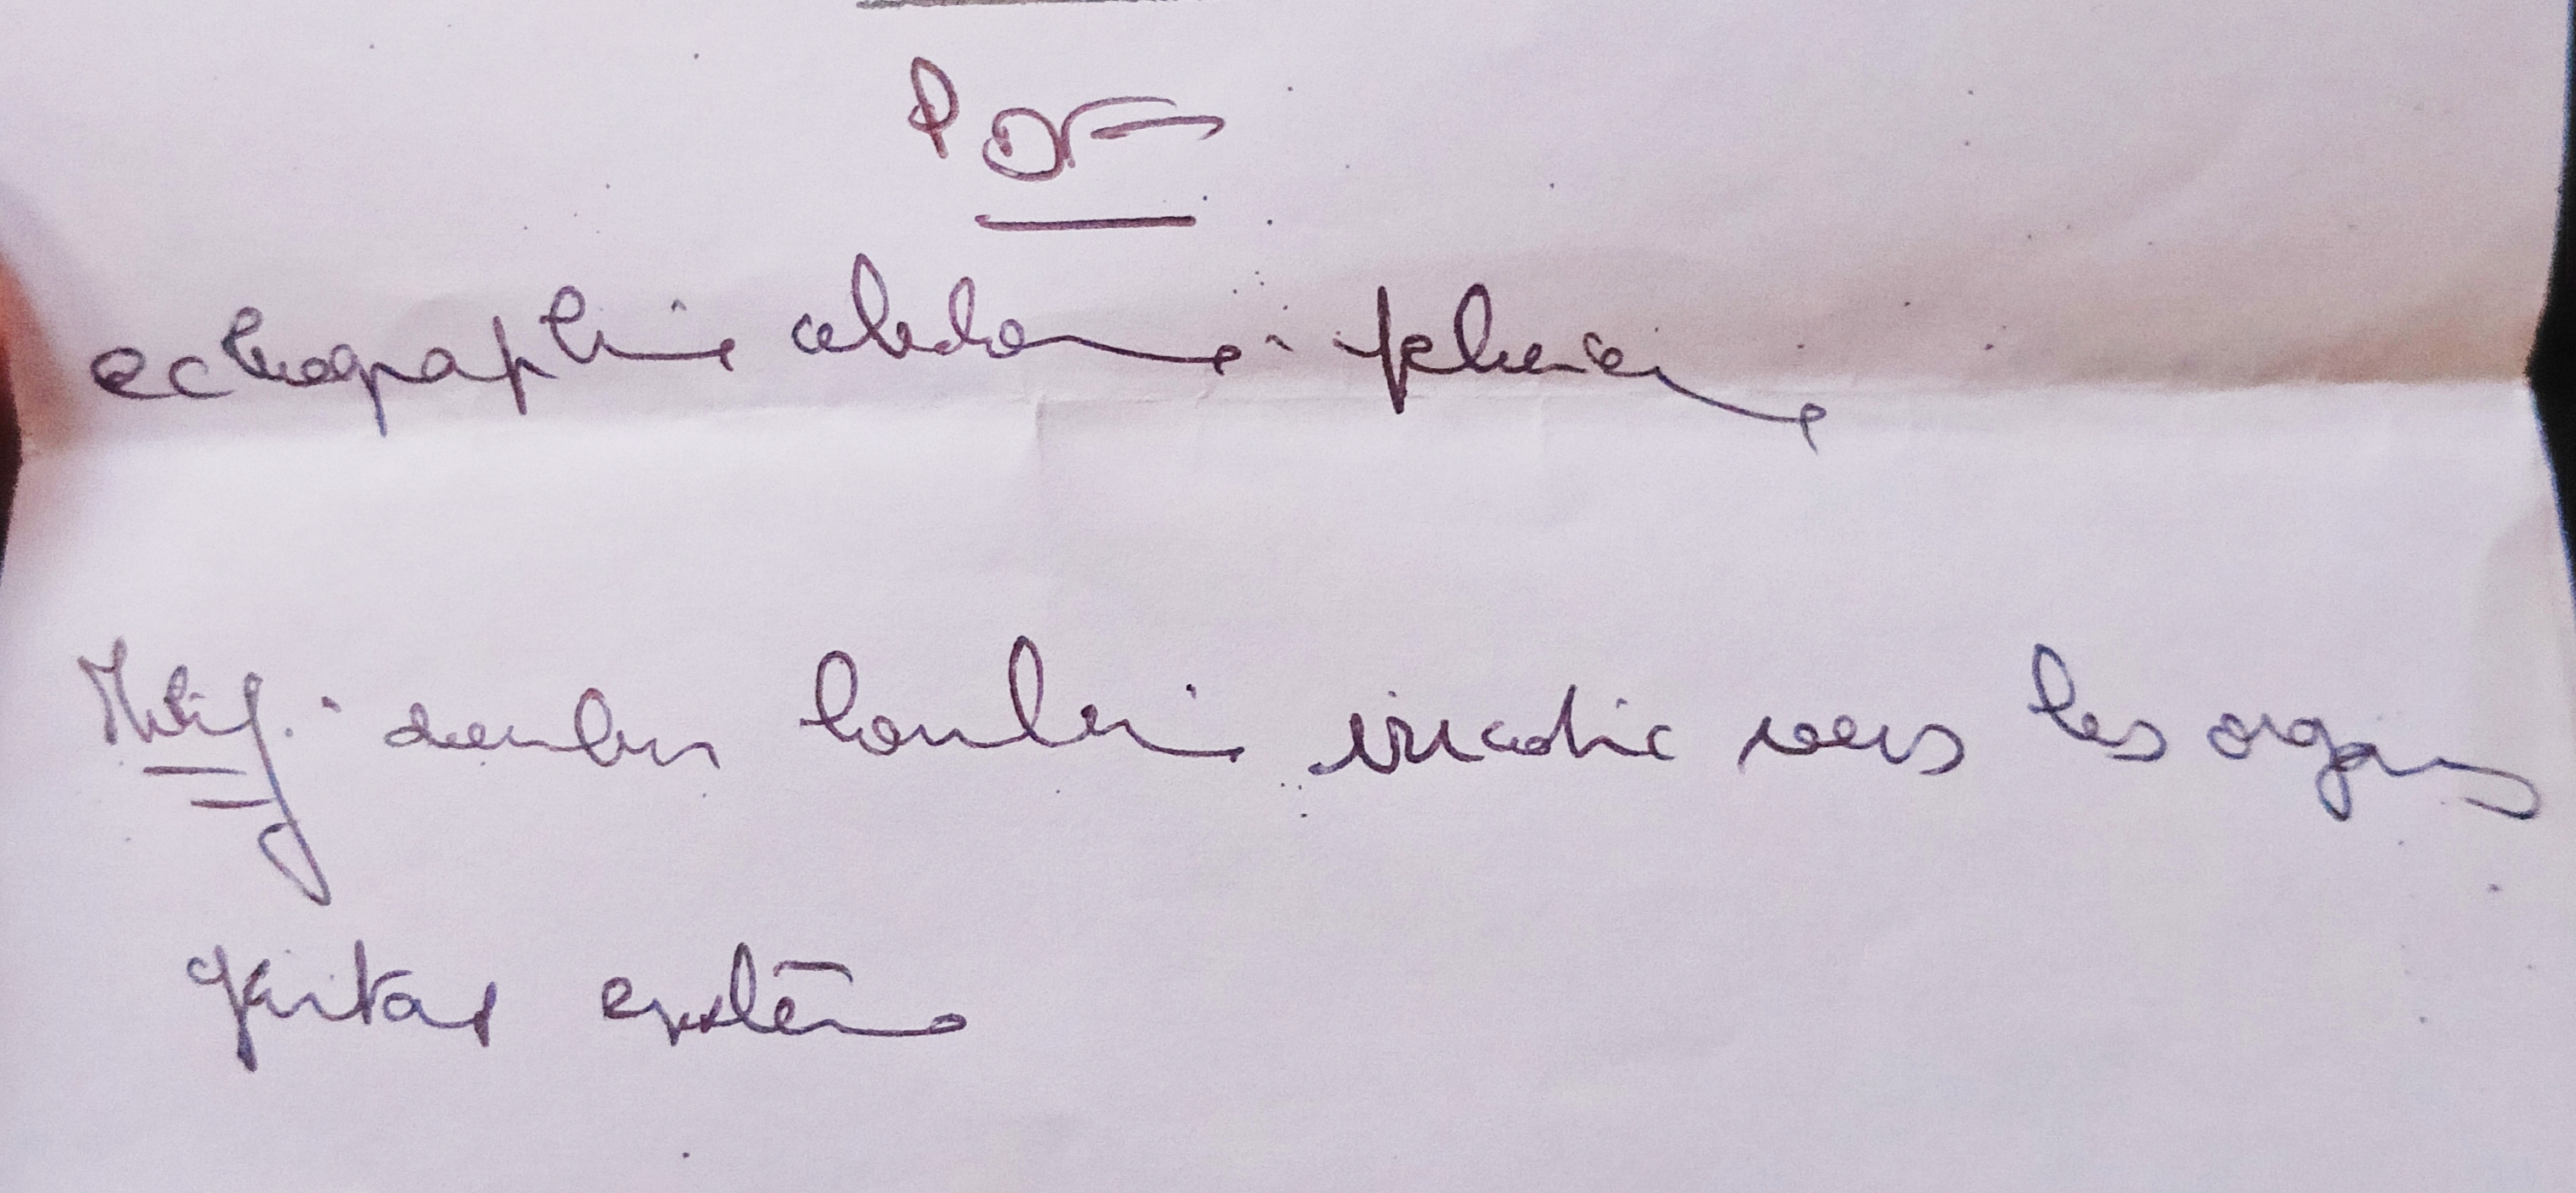 PDF
echographie abdomino-pelvienne
Motif: douleur lombaire irradié vers les organes
génitaux externes